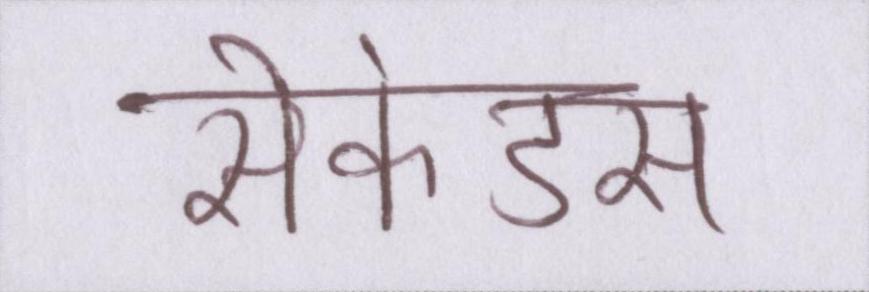 सेकंडस